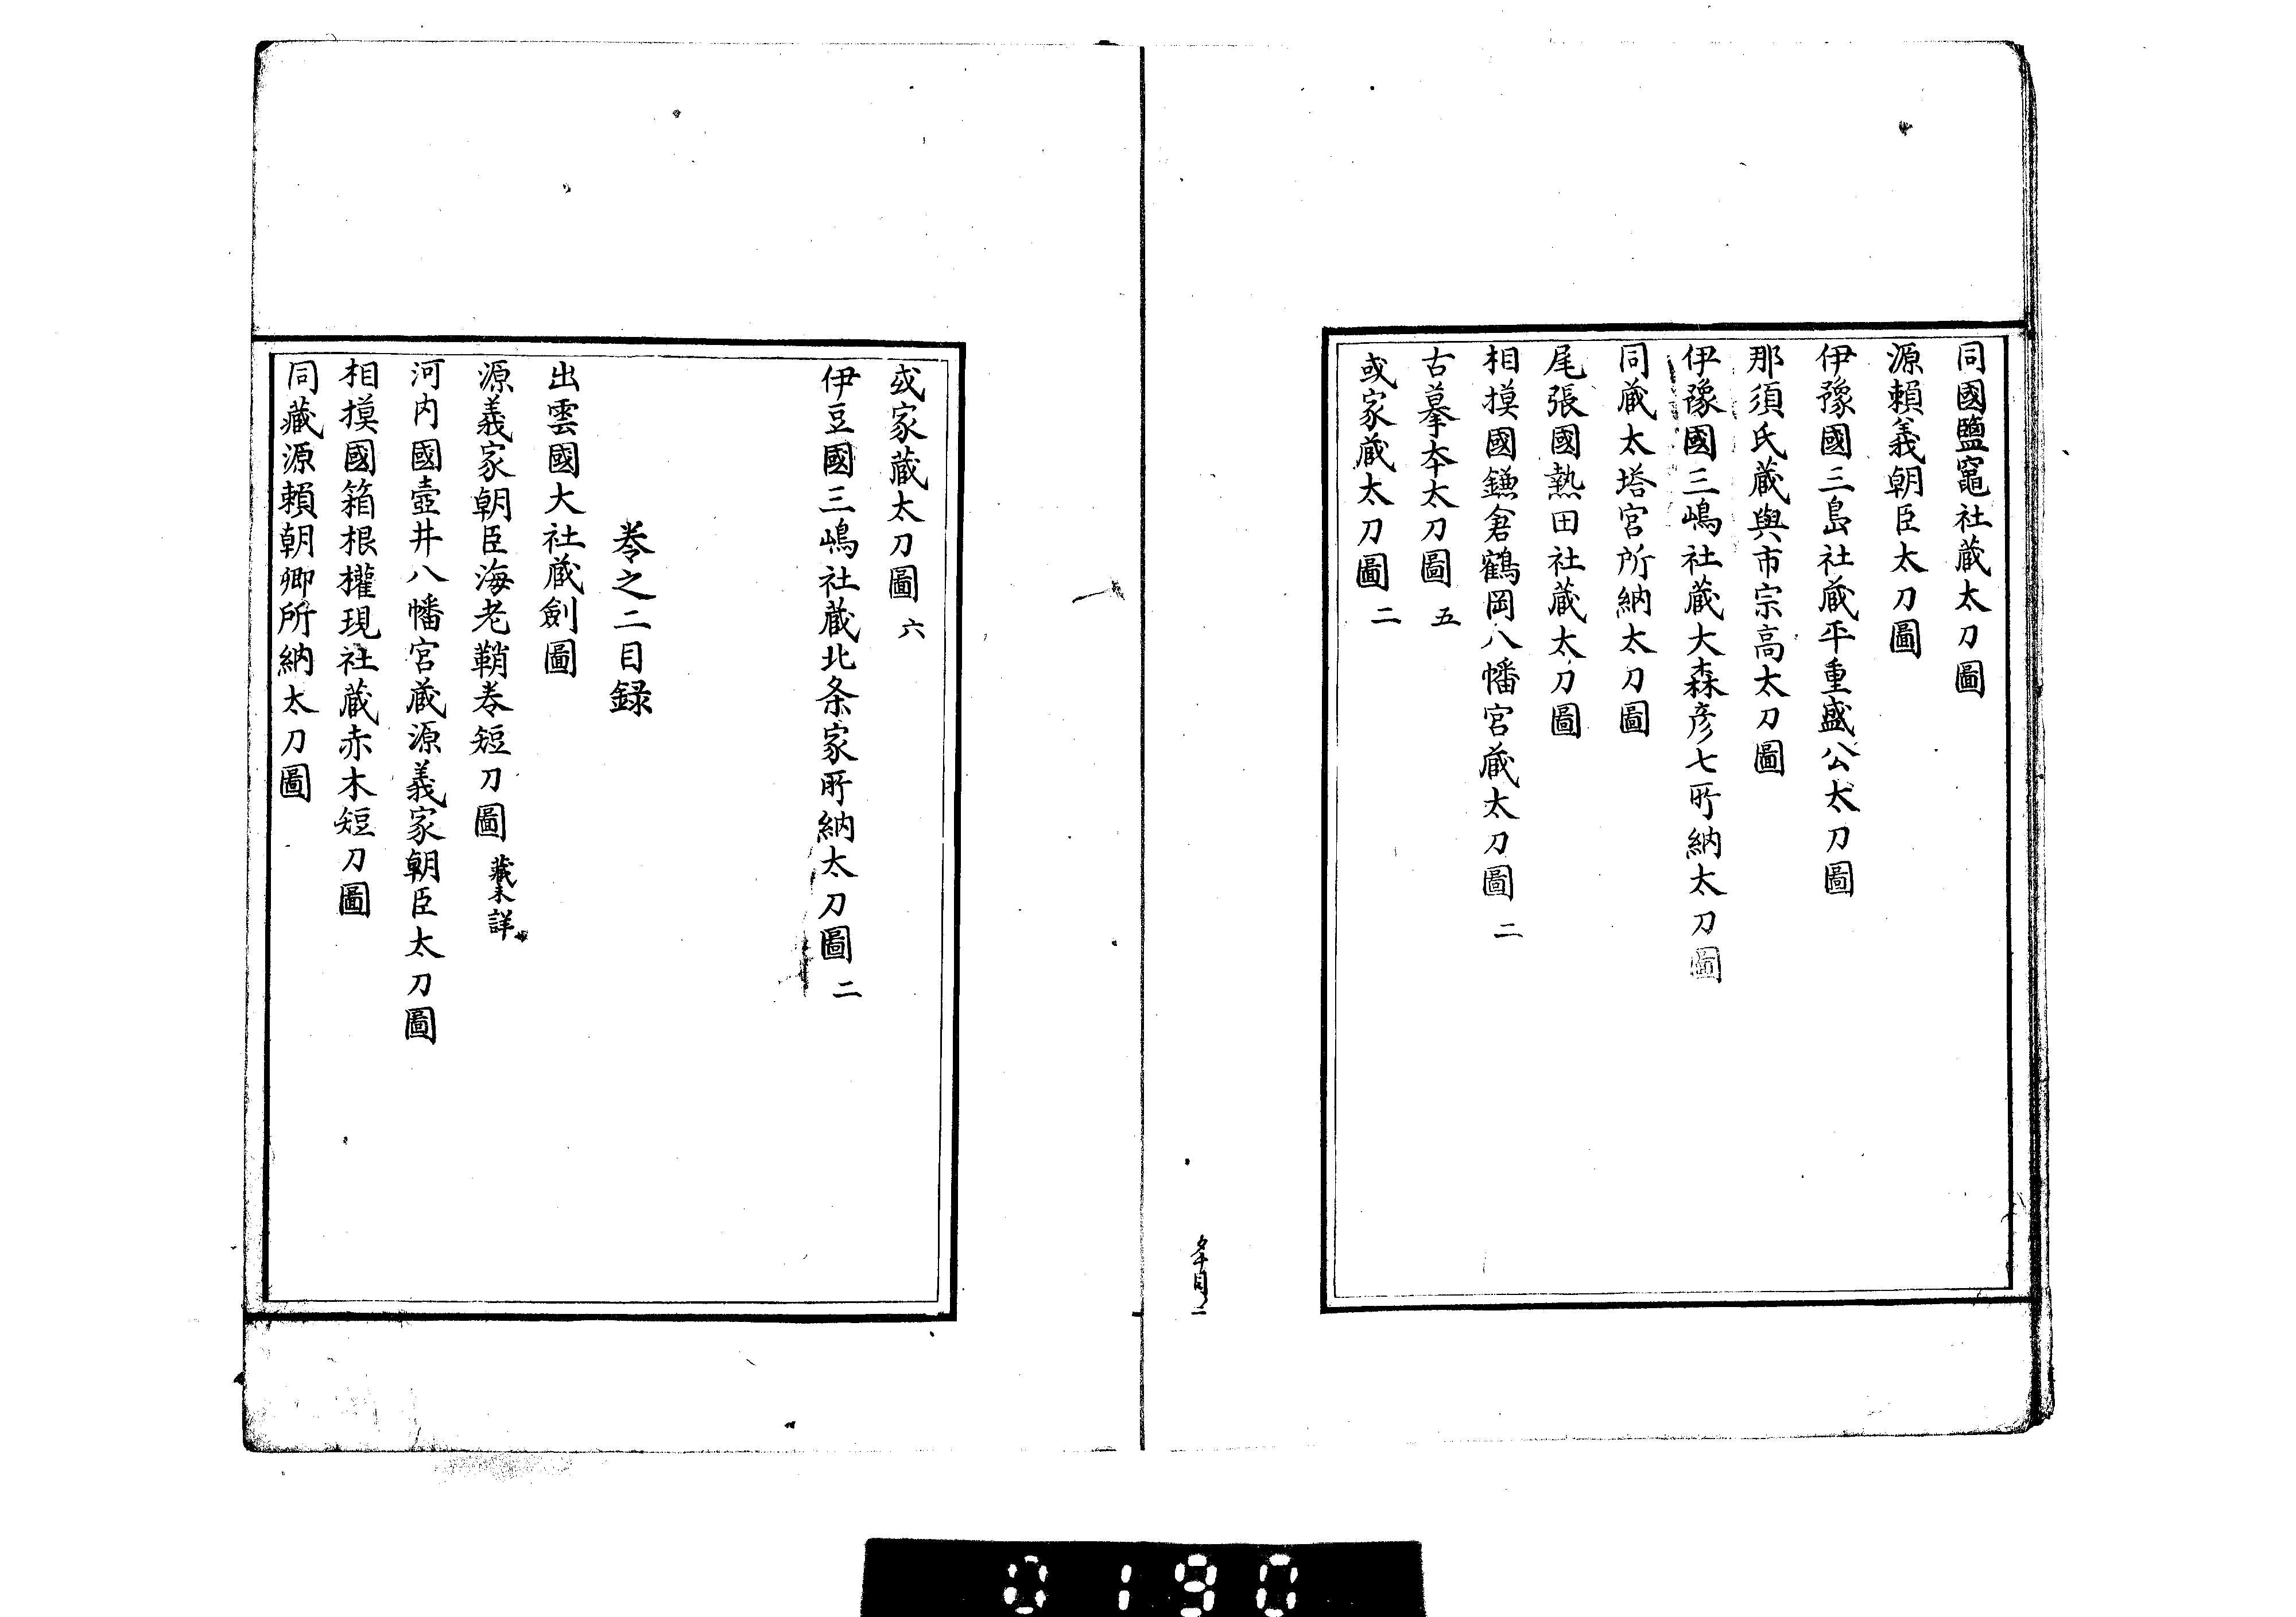 同國鹽竈社蔵太刀圖
源賴義朝臣太刀圖
伊豫國三島社蔵平重盛公太刀圖
那須氏蔵與市宗高太刀圖
伊豫國三嶋社蔵大森彦七所納太刀圖
同蔵大塔宮所納太刀圖
尾張國熱田社蔵太刀圖
相摸國鎌倉鶴岡八幡宮蔵太刀圖 二
古摹本太刀圖 五
或家蔵太刀圖 二
或家蔵太刀圖 六
伊豆國三嶋社蔵北条家所納太刀圖 二
巻之二目録
出雲國大社蔵劍圖
源義家朝臣海老鞘巻短刀圖 藏未詳
河内國壺井八幡宮蔵源義家朝臣太刀圖
相摸國箱根權現社蔵赤木短刀圖
同藏源賴朝卿所納太刀圖
0190